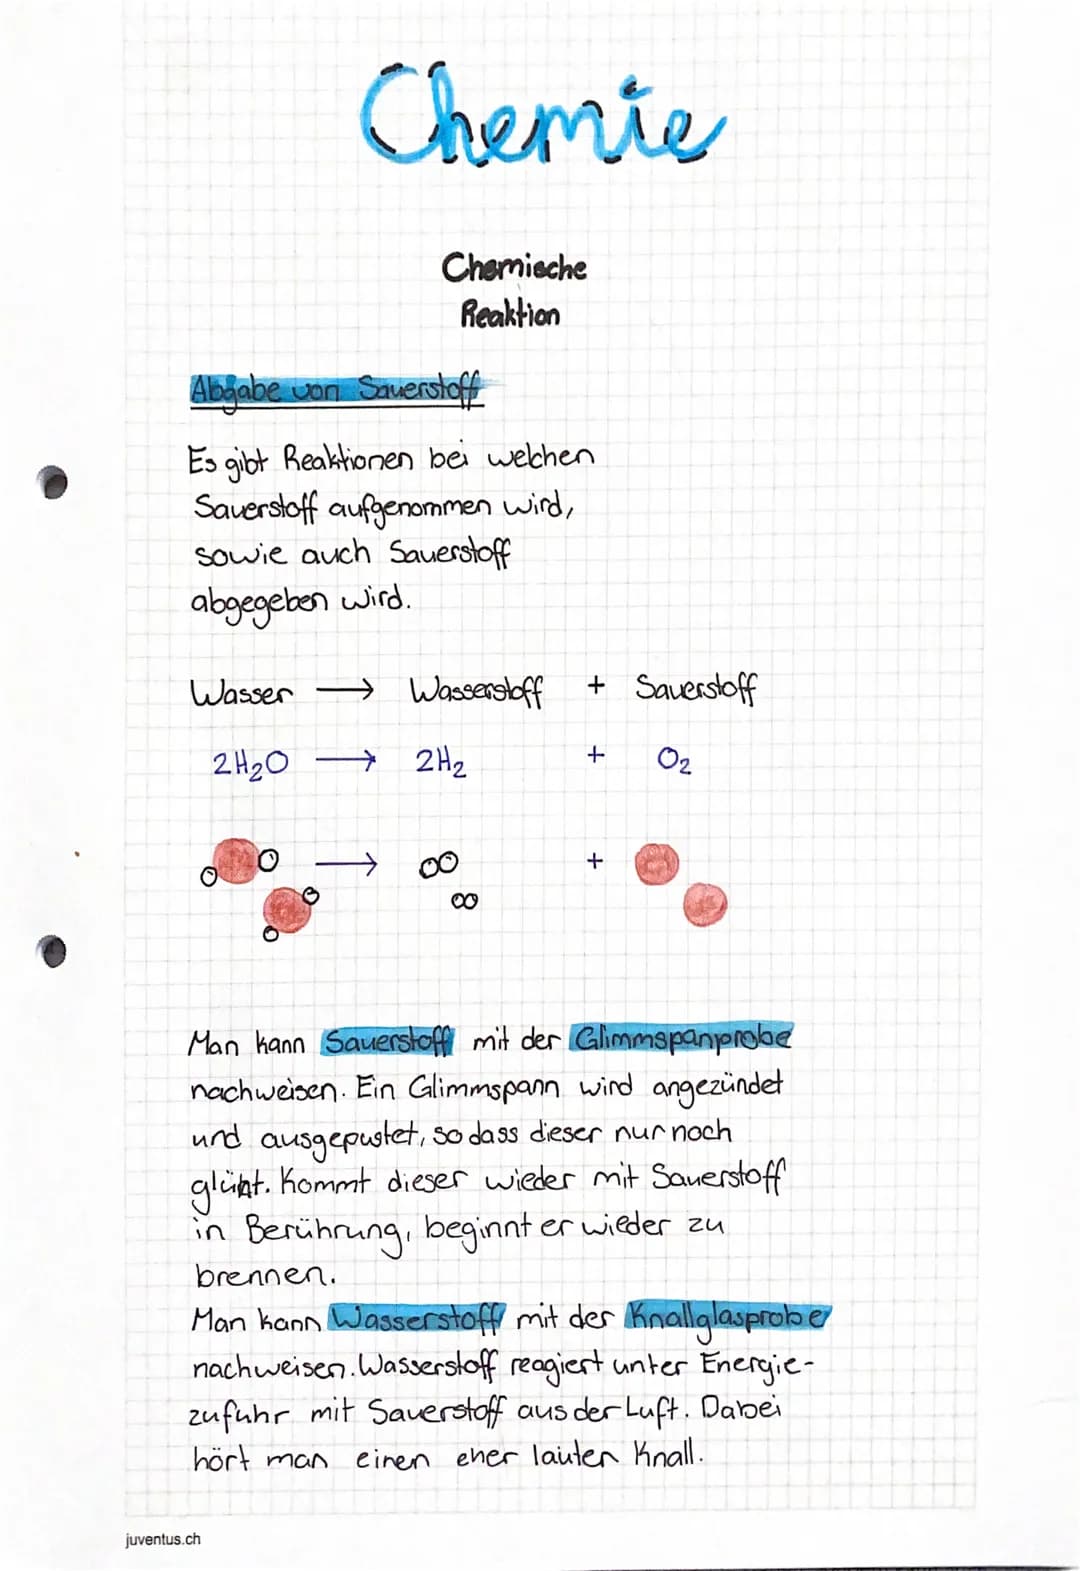 Chemie
Chemische
Reaktion
Abgabe von Sauerstoff
Es gibt Reaktionen bei welchen
Sauerstoff aufgenommen wird,
sowie auch Sauerstoff
abgegeben wird.
Wasser → Wasserstoff + Sauerstoff
2H₂O → 2H₂ + O₂
→ +
Man kann Sauerstoff mit der Glimmspanprobe
nachweisen. Ein Glimmspann wird angezündet
und ausgepustet, so dass dieser nur noch
glüht. Kommt dieser wieder mit Sauerstoff
in Berührung, beginnt er wieder zu
brennen.
Man kann Wasserstoff mit der Knallglasprobe
nachweisen. Wasserstoff reagiert unter Energie-
zufuhr mit Sauerstoff aus der Luft. Dabei
hört man einen eher lauten Knall.
juventus.ch